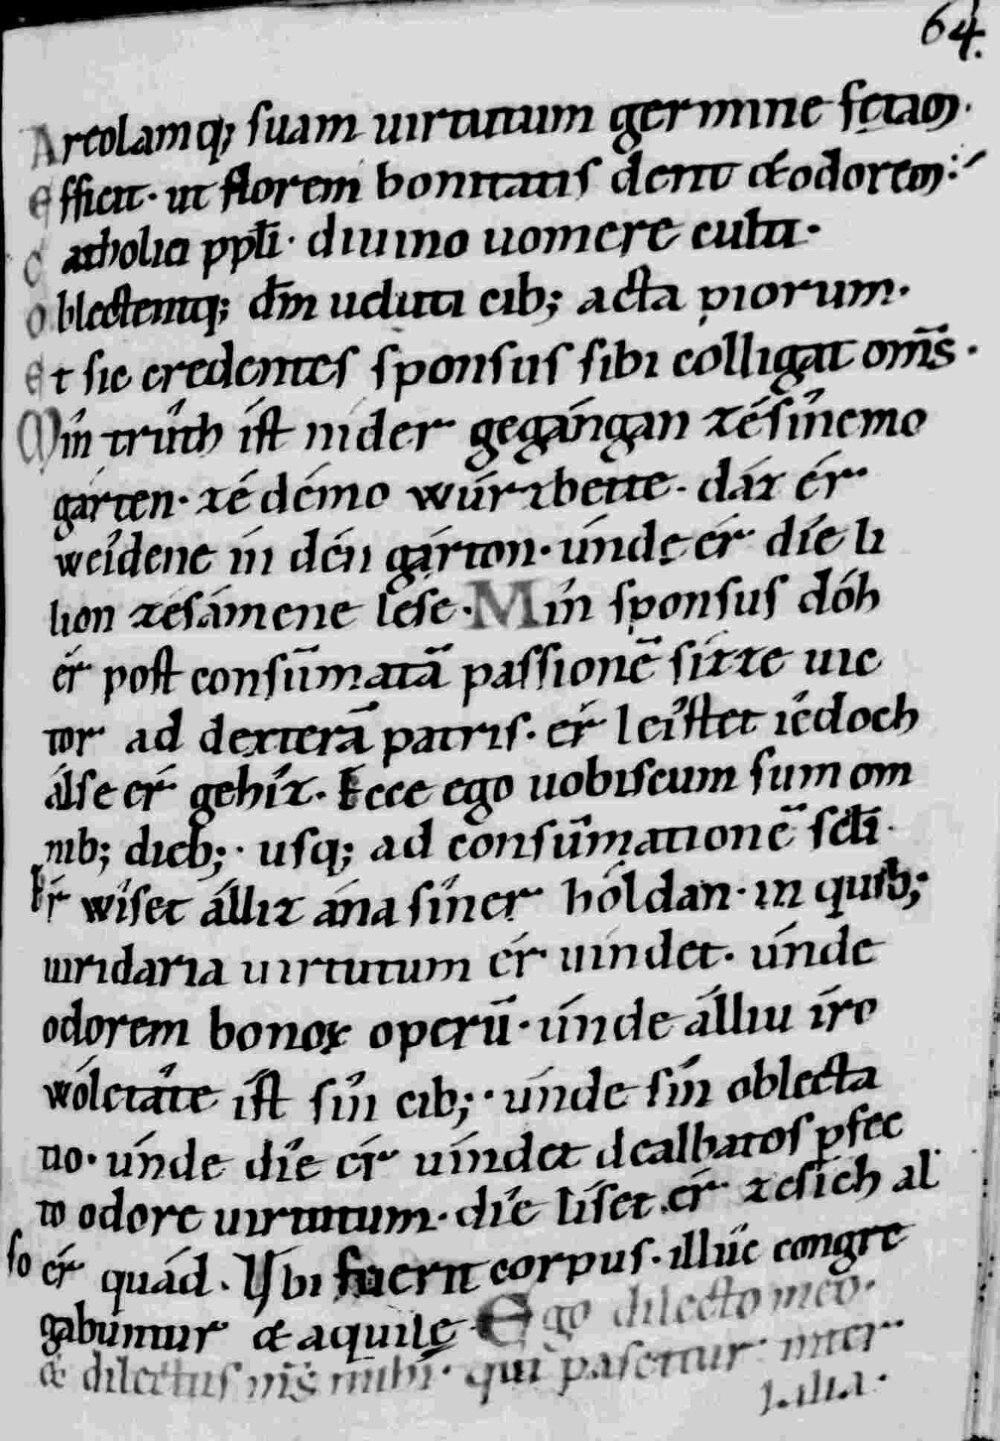 64.
Areolamq; suam uirtutum germine fętam.
efficit. ut florem bonitatis derit & odorem:
Catholici ppl̄i. diuino uomere culti.
oblectentq; dm̄ ueluti cib; acta piorum.
Et sic credentes sponsus sibi colligat om̄s.
Mín trût́h íst nider gegángan zé sînemo
gárten. zé démo wúrzbette. dáz ér
weîdene in dén gárton. únde ér dîe li
lion zesámene lese. Mîn sponsus dóh
ér post consūmatā passionē sizze uic
tor ad dexterā patris. ér leîstet iêdoch
álse ér gehíz. Ecce ego uobiscum sum om
nib; dieb;. usq; ad consūmationē scl̄i.
Er wîset állíz ána sîner hóldan. in quib;
uiridaria uirtutum ér uindet. únde
odorem bonoꝝ operū. únde álliu íro
wóletâte íst sîn cib;. únde sîn oblecta
tio. únde dîe ér uíndet dealbatos pfec
to odore uirtutum. dîe líset ér zesich al
so ér quád. Vbi fuerit corpus. illuc congre
gabuntur & aquilę. Ego dilecto meo.
& dilectus m̄s mihi. qui pascitur inter
lilia.